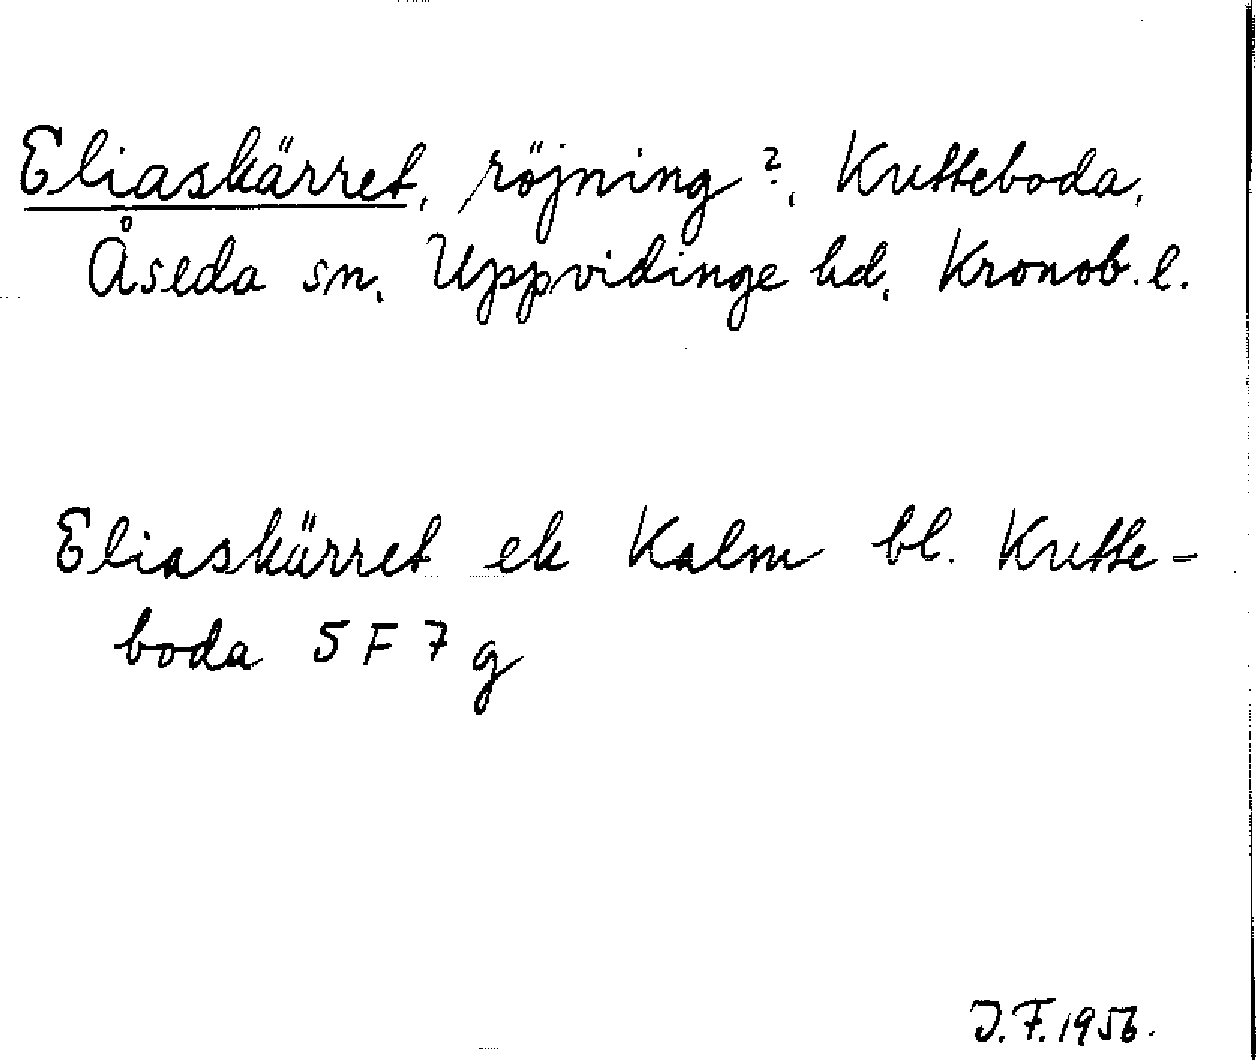 Eliaskärret, röjning?, Kutteboda,
Åseda sn, Uppvidinge hd, Kronob. l.
Eliaskärret ek Kalm bl. Kutte-
boda 5 F 7 g
J. F. 1956.